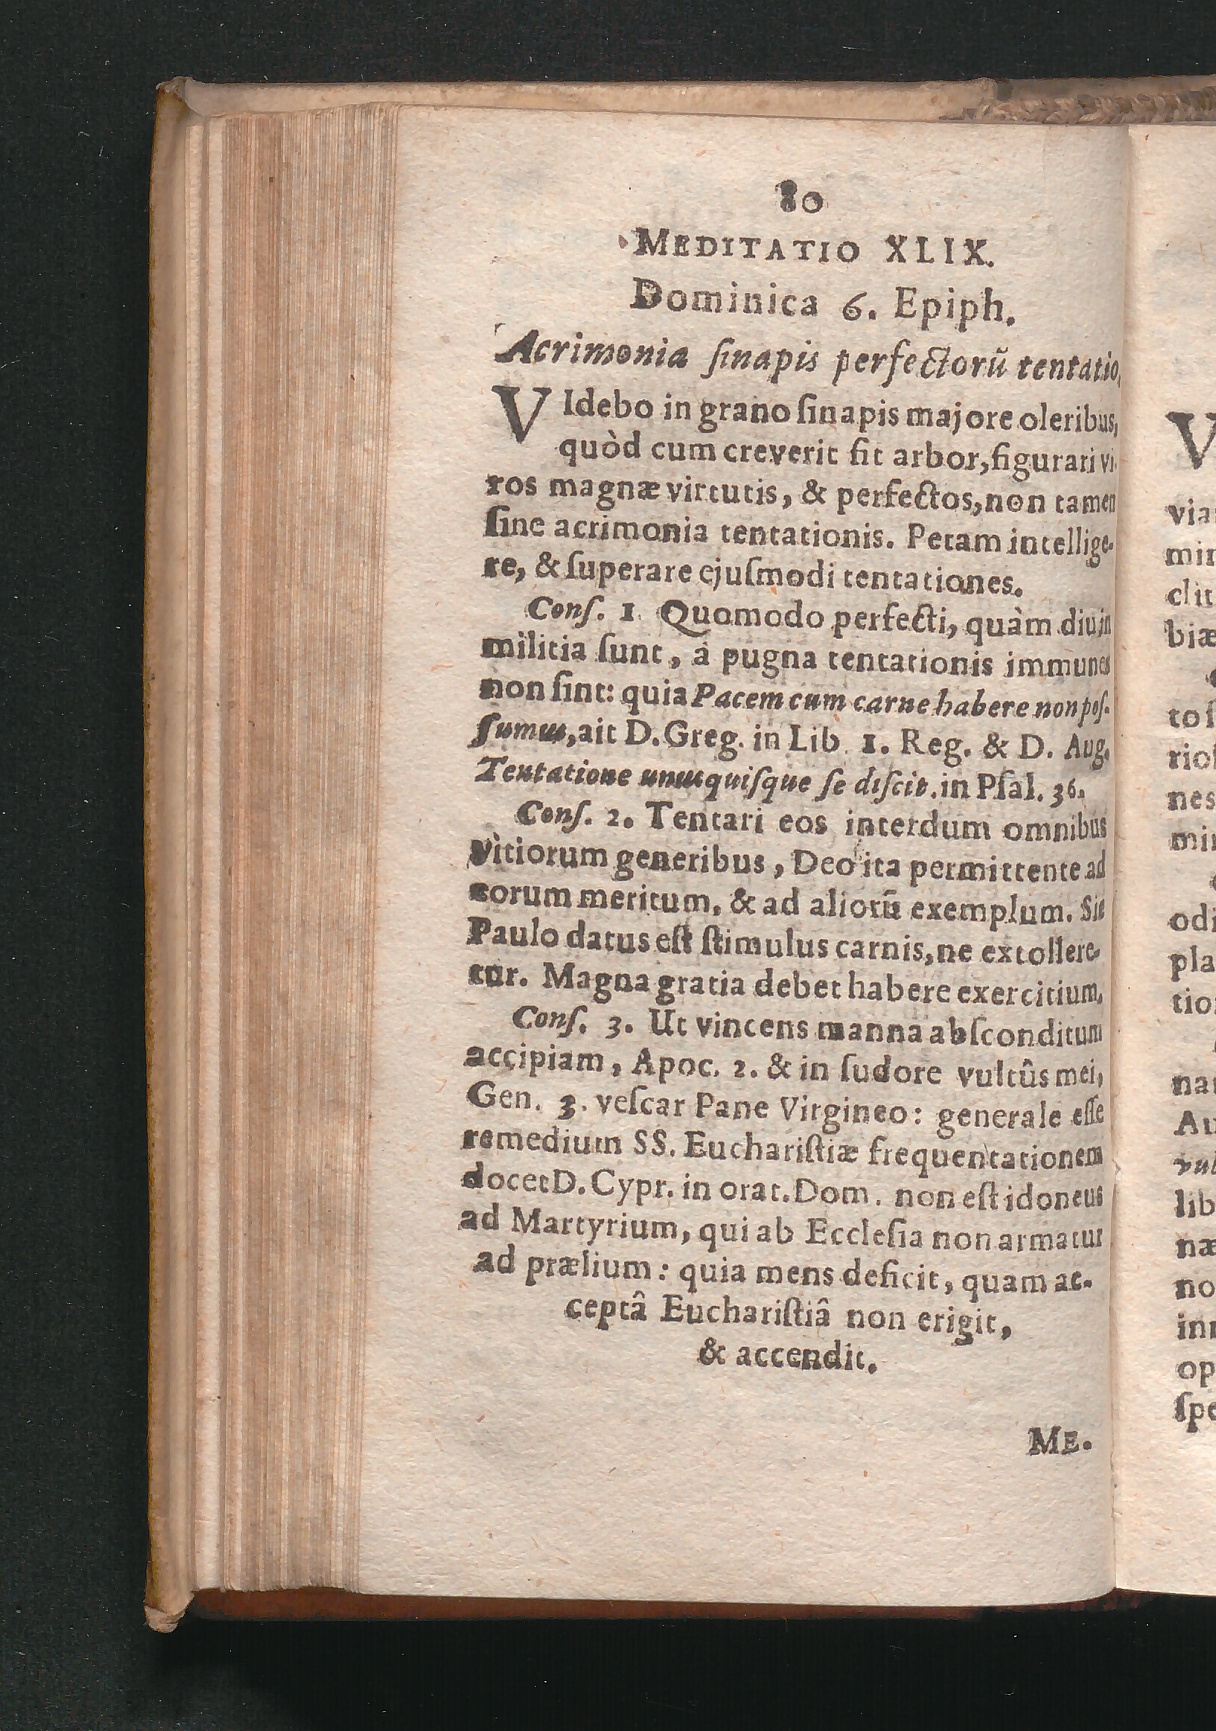 80
MEDITATIO XLIX.
Dominica 6. Epiph.
Acrimonia ſinapis perfectorũ tentatio,
VIdebo in grano ſinapis majore oleribus,
quòd cum creverit fit arbor, figurari vi-
ros magnæ virtutis, & perfectos, non tamen
ſine acrimonia tentationis. Petam intellige-
re, & ſuperare ejuſmodi tentationes.
Conſ. 1. Quomodo perfecti, quàm diu in
militia ſunt, á pugna tentationis immunes
non ſint: quia Pacem cum carne habere non poſ-
ſumus, ait D. Greg. in Lib. 1. Reg. & D. Aug.
Tentatione unuſquiſque ſe diſcit. in Pſal. 36.
Conſ. 2. Tentari eos interdum omnibus
vitiorum generibus, Deo ita permittente ad
eorum meritum, & ad aliorũ exemplum. Sic
Paulo datus eſt ſtimulus carnis, ne extollere-
tur. Magna gratia debet habere exercitium.
Conſ. 3. Ut vincens manna abſconditum
accipiam, Apoc. 2. & in ſudore vultûs mei,
Gen. 3. veſcar Pane Virgineo: generale eſſe
remedium SS. Euchariſtiæ frequentationem
docet D. Cypr. in orat. Dom. non eſt idoneus
ad Martyrium, qui ab Eccleſia non armatur
ad prælium: quia mens deficit, quam ac-
ceptâ Euchariſtiâ non erigit,
& accendit.
ME-
V
via
min
clit
biæ
to ſ
rio
nes
min
odi
pla
tio
nar
Au
vul
lib
næ
no
inn
op
ſpe